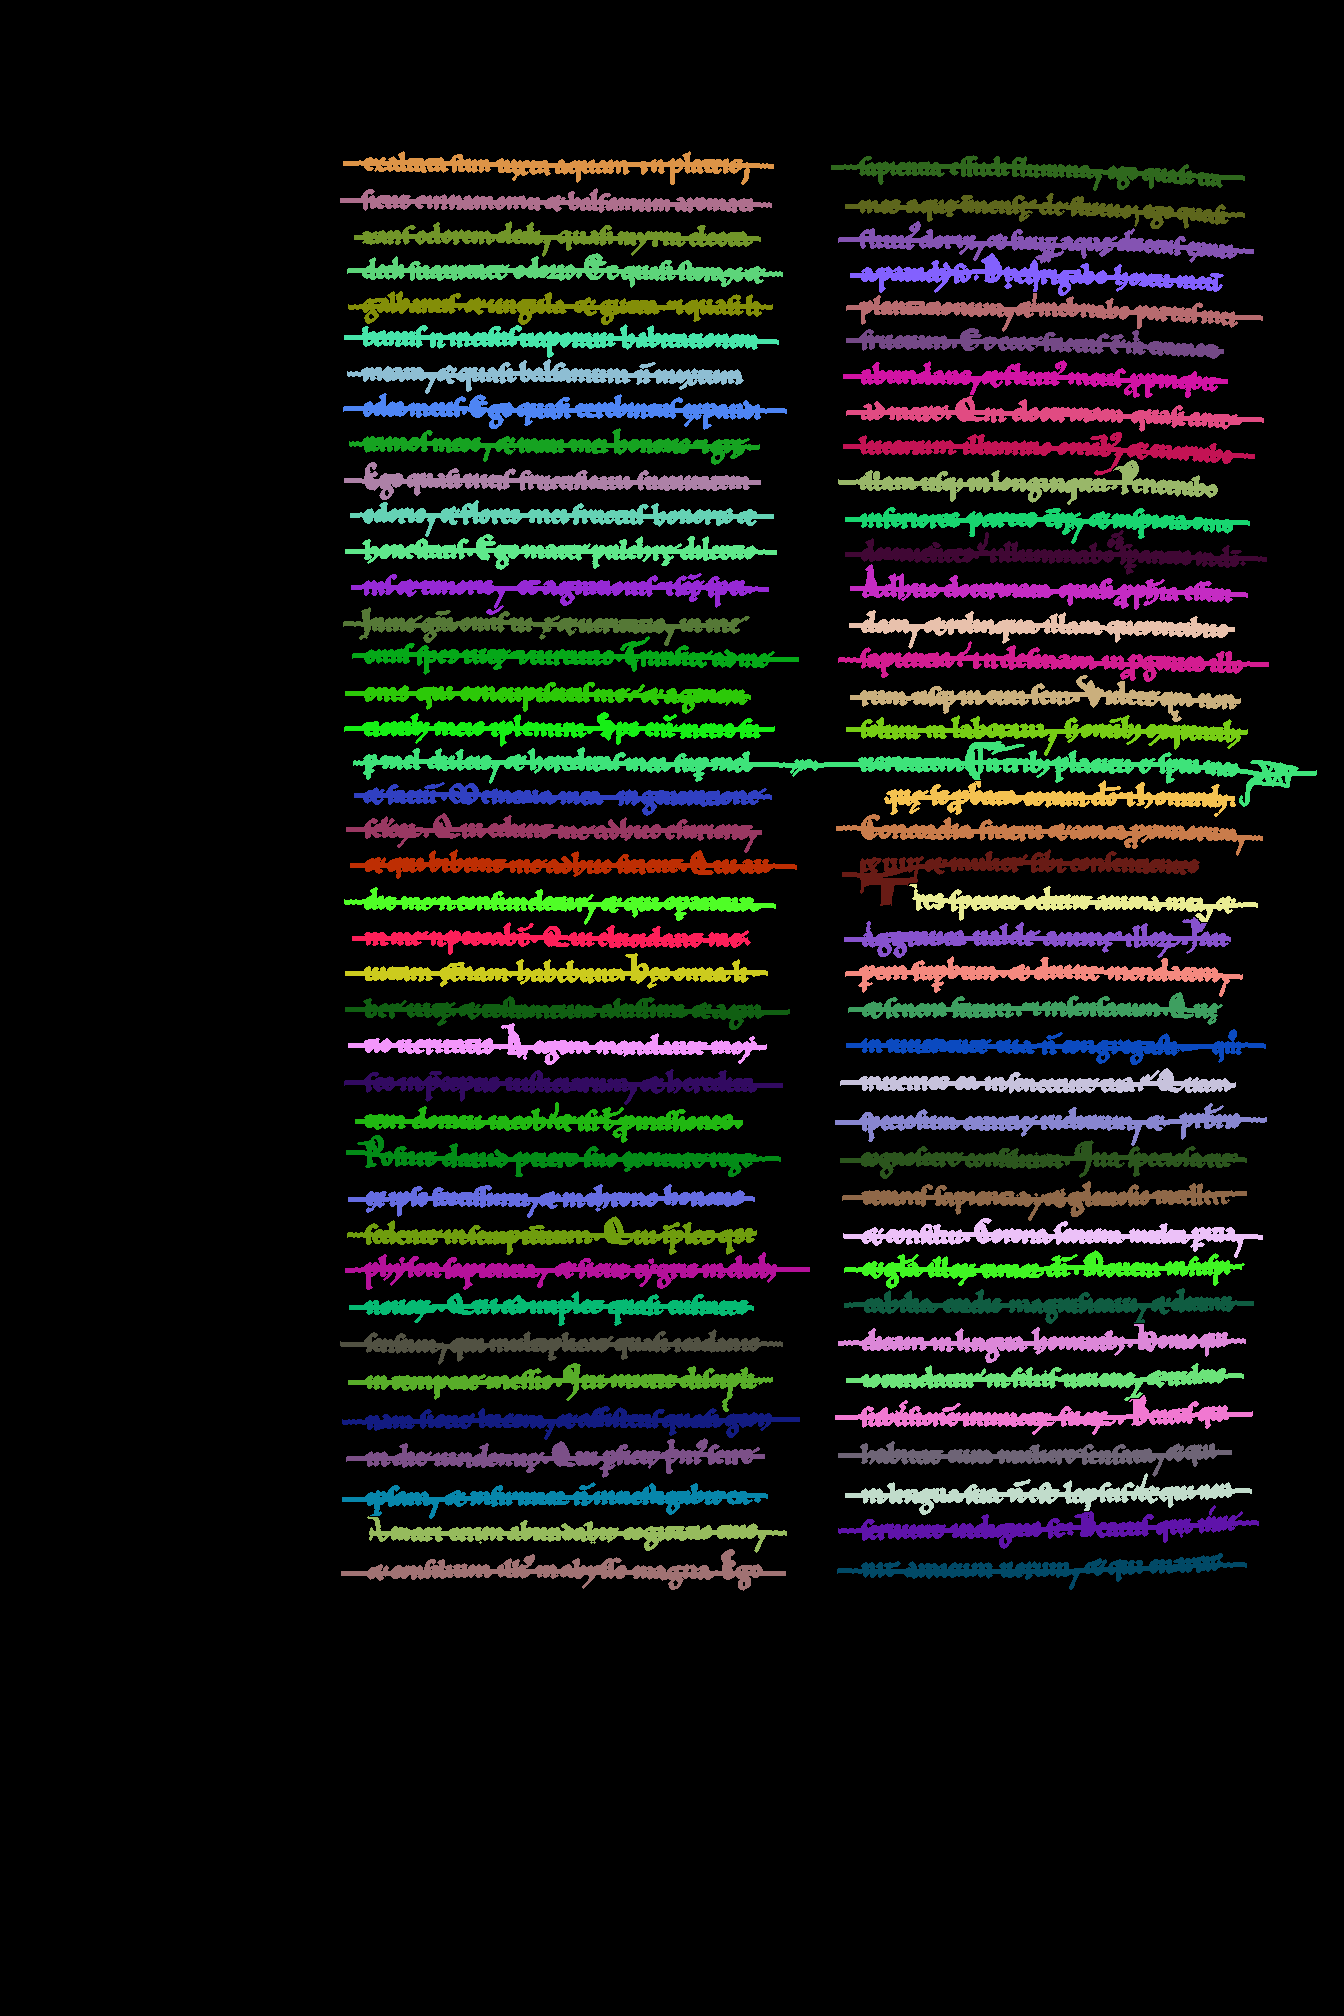 exaltata sum iuxta aquam in plateis,
sicut cinnamomu et balsamum aromati
zans odorem dedi, quasi myrra electa
dedi suauitate odoris Et quasi storax et
galbanus et ungula et gutta et quasi li
banus n incisus uaporaui habitationem
meam, et quasi balsamum n mixtum
odor meus Ego quasi terebintus expandi
ramos meos, et rami mei honoris et
Ego quasi uitis fructificaui suauitatem
odoris, et flores mei fructus honoris et
honestatis Ego mater pulchrę dilectio
nis et timoris, et agnitionis et scę spei
In me gra omis uię et ueritatis, in me
omis spes uitę et uirtutis Transite ad me
oms qui concupiscitis me et a genera
tionib; meis implemini Sps eni meus su
p mel dulcis, et hereditas mea sup mel
et fauu Memoria mea in generatione
Qui edunt me adhuc esurient,
et qui bibunt me adhuc sitient Qui au
dit me non confundetur, et qui operantur
in me n peccabt Qui elucidant me
uitam eternam habebunt Hęc omia li
ber uitę et testamentum altissimi et agni
tio ueritatis mandauit
hereditate
domui iacob et
Posuit dauid puero suo excitare rege
ex ipso fortissimum, et in throno honoris
sedentem in sempiternum Qui implet quasi
physon sapientia, et sicut tigris in dieb;
nouoru Qui adimplet quasi eufrates
sensum, qui multiplicat quasi iordanis
in tempore messis Qui mittit discipli
nam sicut lucem, et assistens quasi geon
in die uindemię Qui
ipsam, et infirmior n inuestigabit ea
A mari enim abundabit cogitatio eius,
et consilium illi in abysso magna Ego
sapientia effudi flumina, ego quasi tra
mes aquę immensę de fluuio, ego quasi
fluuii dorix, et sicut aquę ductus exiui
a paradyso Dixi rigabo hortum meu
plantationum, et inebriabo partus mei
fructum Et ecce factus e m trames
abundans, et fluuius meus ppinquauit
ad mare Qm doctrinam quasi ante
lucanum illumino omib;, et enarrabo
illam usq; in longinquum Penetrabo
inferiores partes trę, et inspiciam oms
dormientes et illuminabo sperantes in do
Adhuc doctrinam quasi pphetia effun
dam, et relinquam illam querentibus
sapientia et n desinam in progenies illo
rum usq; in euu scm Videte qm non
soli m laboraui, s omib; exquirentib;
ueritatem In trib; placitum e spui meo
quę s pbata coram do et hominib;
Concordia fratru et amor proximorum,
et uir et mulier sibi consentientes
Tres species odiuit anima mea, et
aggrauor ualde animę illoru Pau
perem supbum et diuite mendacem,
et senem fatuum et insensatum Quę
in iuuentute tua n congregasti, quo
inuenies in senectute tua Quam
speciosum canitiei iudicium, et prbris
cognoscere consilium Quam speciosa
ueteranis sapientia, et gloriosus intellectus
et consilium Corona senum multa peritia,
et gla illoru timor di Nouem insuspi
cabilia cordis magnificaui, et decimu
dicam in lingua hominib; Homo qui
iocundatur in filiis uiuens, et uidens
subuersione inimicoru suoru Beatus qui
habitat cum muliere sensata, et qui
in lingua sua n e lapsus et qui non
seruiuit indignis se Beatus qui inue
nit amicum uerum, et qui enarrat